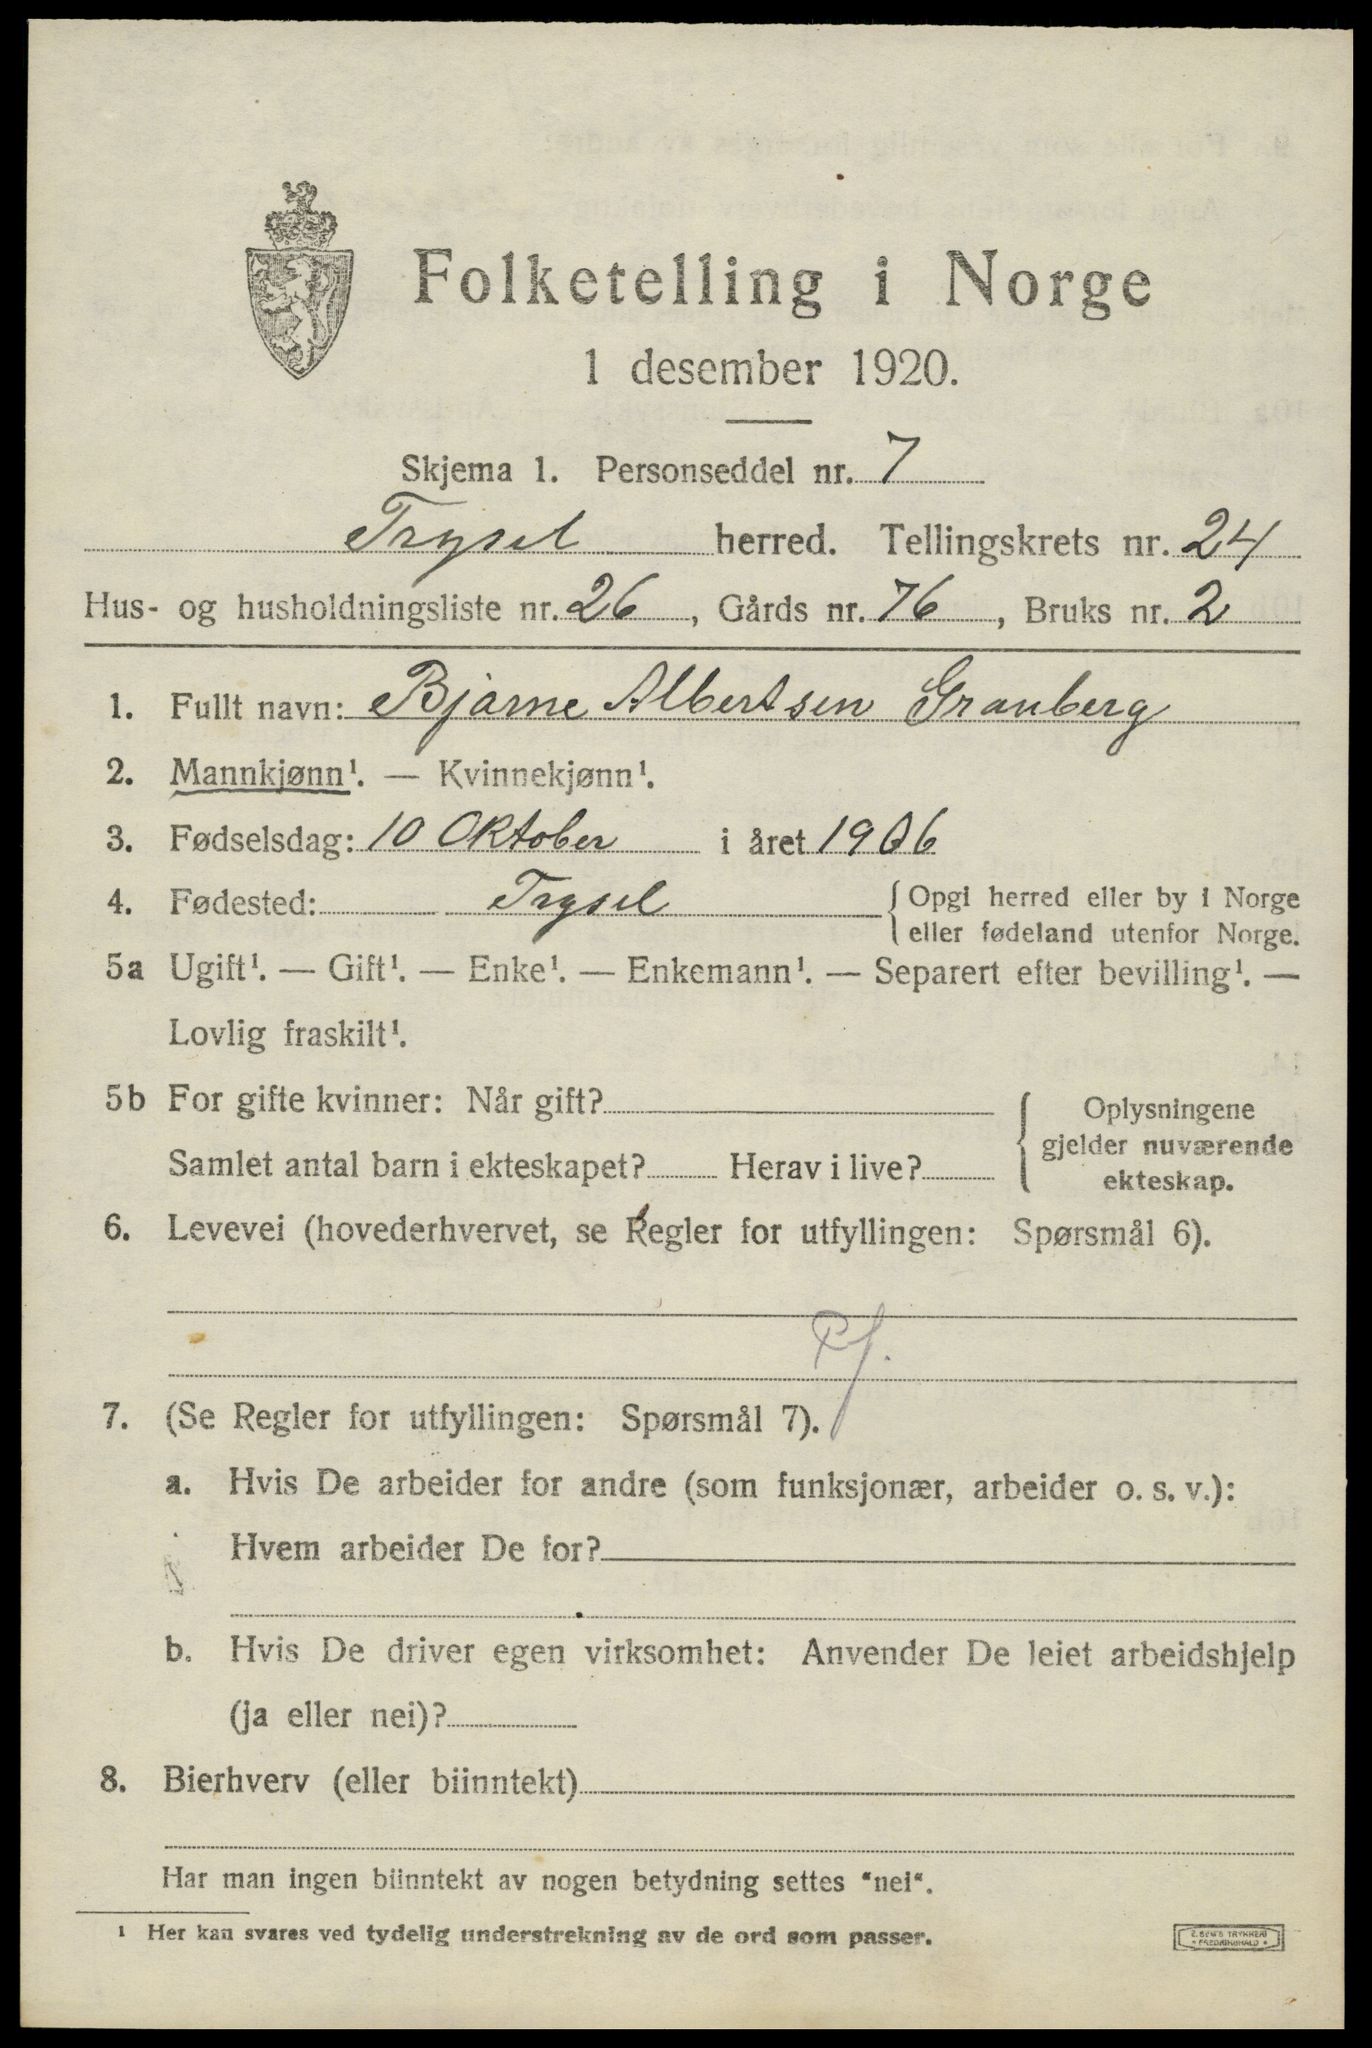 Folketelling i Norge
1 desember 1920.
Skjema 1. Personseddel nr. 7
Trysel herred. Tellingskrets nr. 24
Hus- og husholdningsliste nr. 26, Gårds nr. 76, Bruks nr. 2
1. Fullt navn: Bjarne Albertsen Granberg
2. Mannkjønn¹. — Kvinnekjønn¹.
3. Fødselsdag: 10 Oktober i året 1906
4. Fødested: Trysel { Opgi herred eller by i Norge
eller fødeland utenfor Norge.
5a Ugift¹. — Gift¹. — Enke¹. — Enkemann¹. — Separert efter bevilling¹. —
Lovlig fraskilt¹.
5b For gifte kvinner: Når gift?
Samlet antal barn i ekteskapet? Herav i live?
{ Oplysningene
gjelder nuværende
ekteskap.
6. Levevei (hovederhvervet, se Regler for utfyllingen: Spørsmål 6).
Pf.
7. (Se Regler for utfyllingen: Spørsmål 7).
a. Hvis De arbeider for andre (som funksjonær, arbeider o. s. v.):
Hvem arbeider De for?
b. Hvis De driver egen virksomhet: Anvender De leiet arbeidshjelp
(ja eller nei)?
8. Bierhverv (eller biinntekt)
Har man ingen biinntekt av nogen betydning settes "nei".
¹ Her kan svares ved tydelig understrekning av de ord som passer.
E. SEM'S TRYKKERI
FREDRIKSHALD